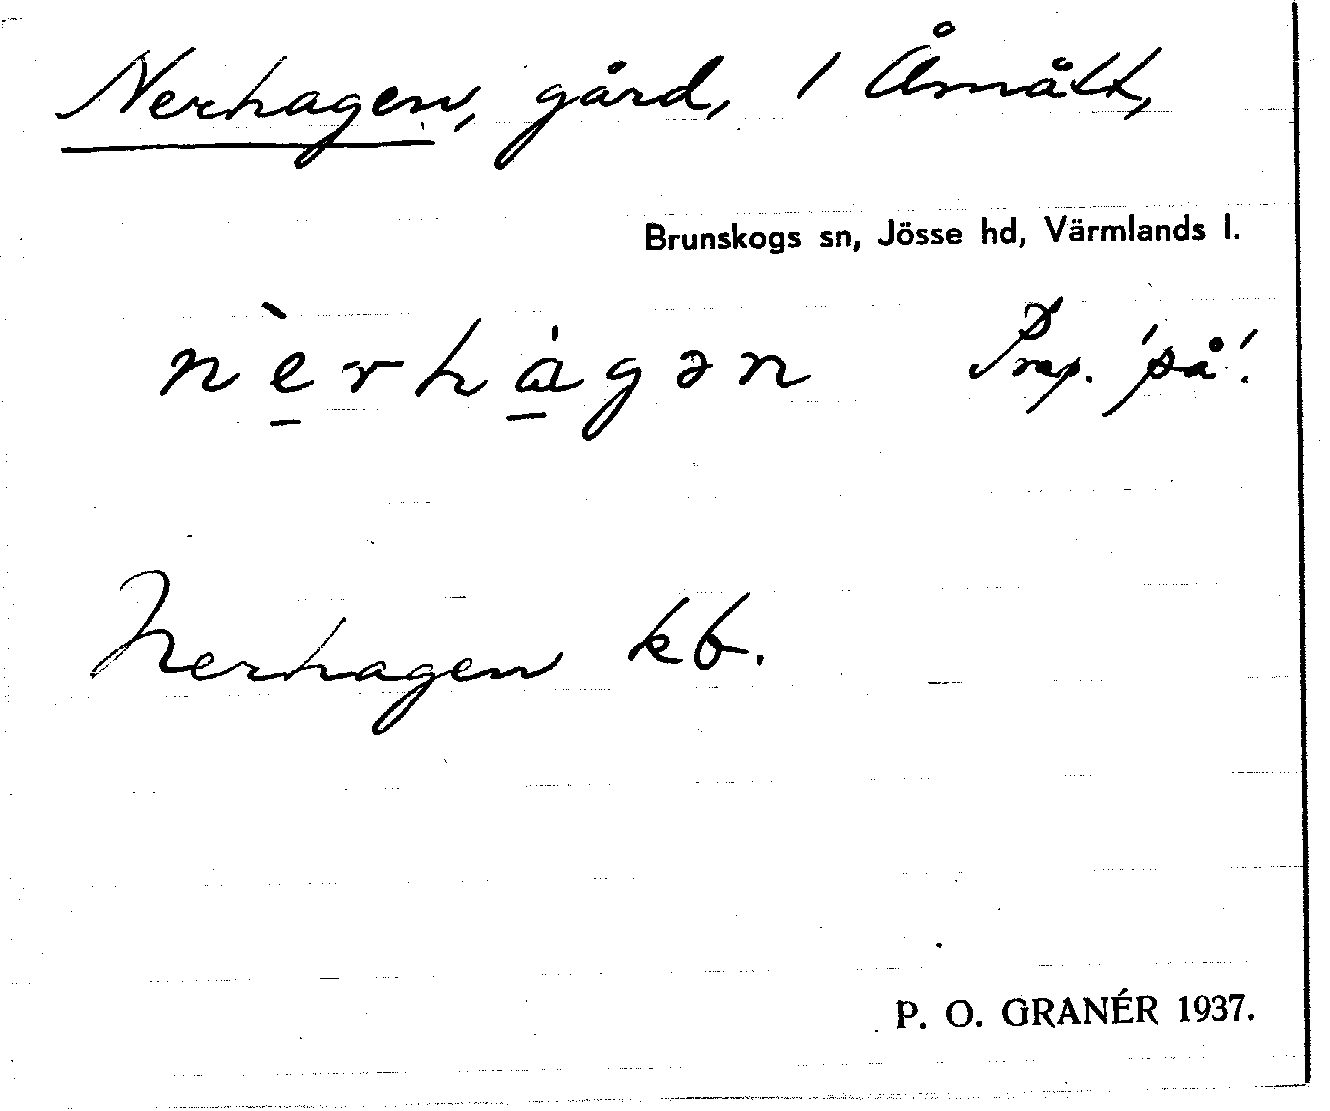 Nerhagen, gård, 1 Åmålt,
Brunskogs sn, Jösse hd, Värmlands l.
nèrhágən Prep. 'på'.
Nerhagen kb.
P. O. GRANÉR 1937.